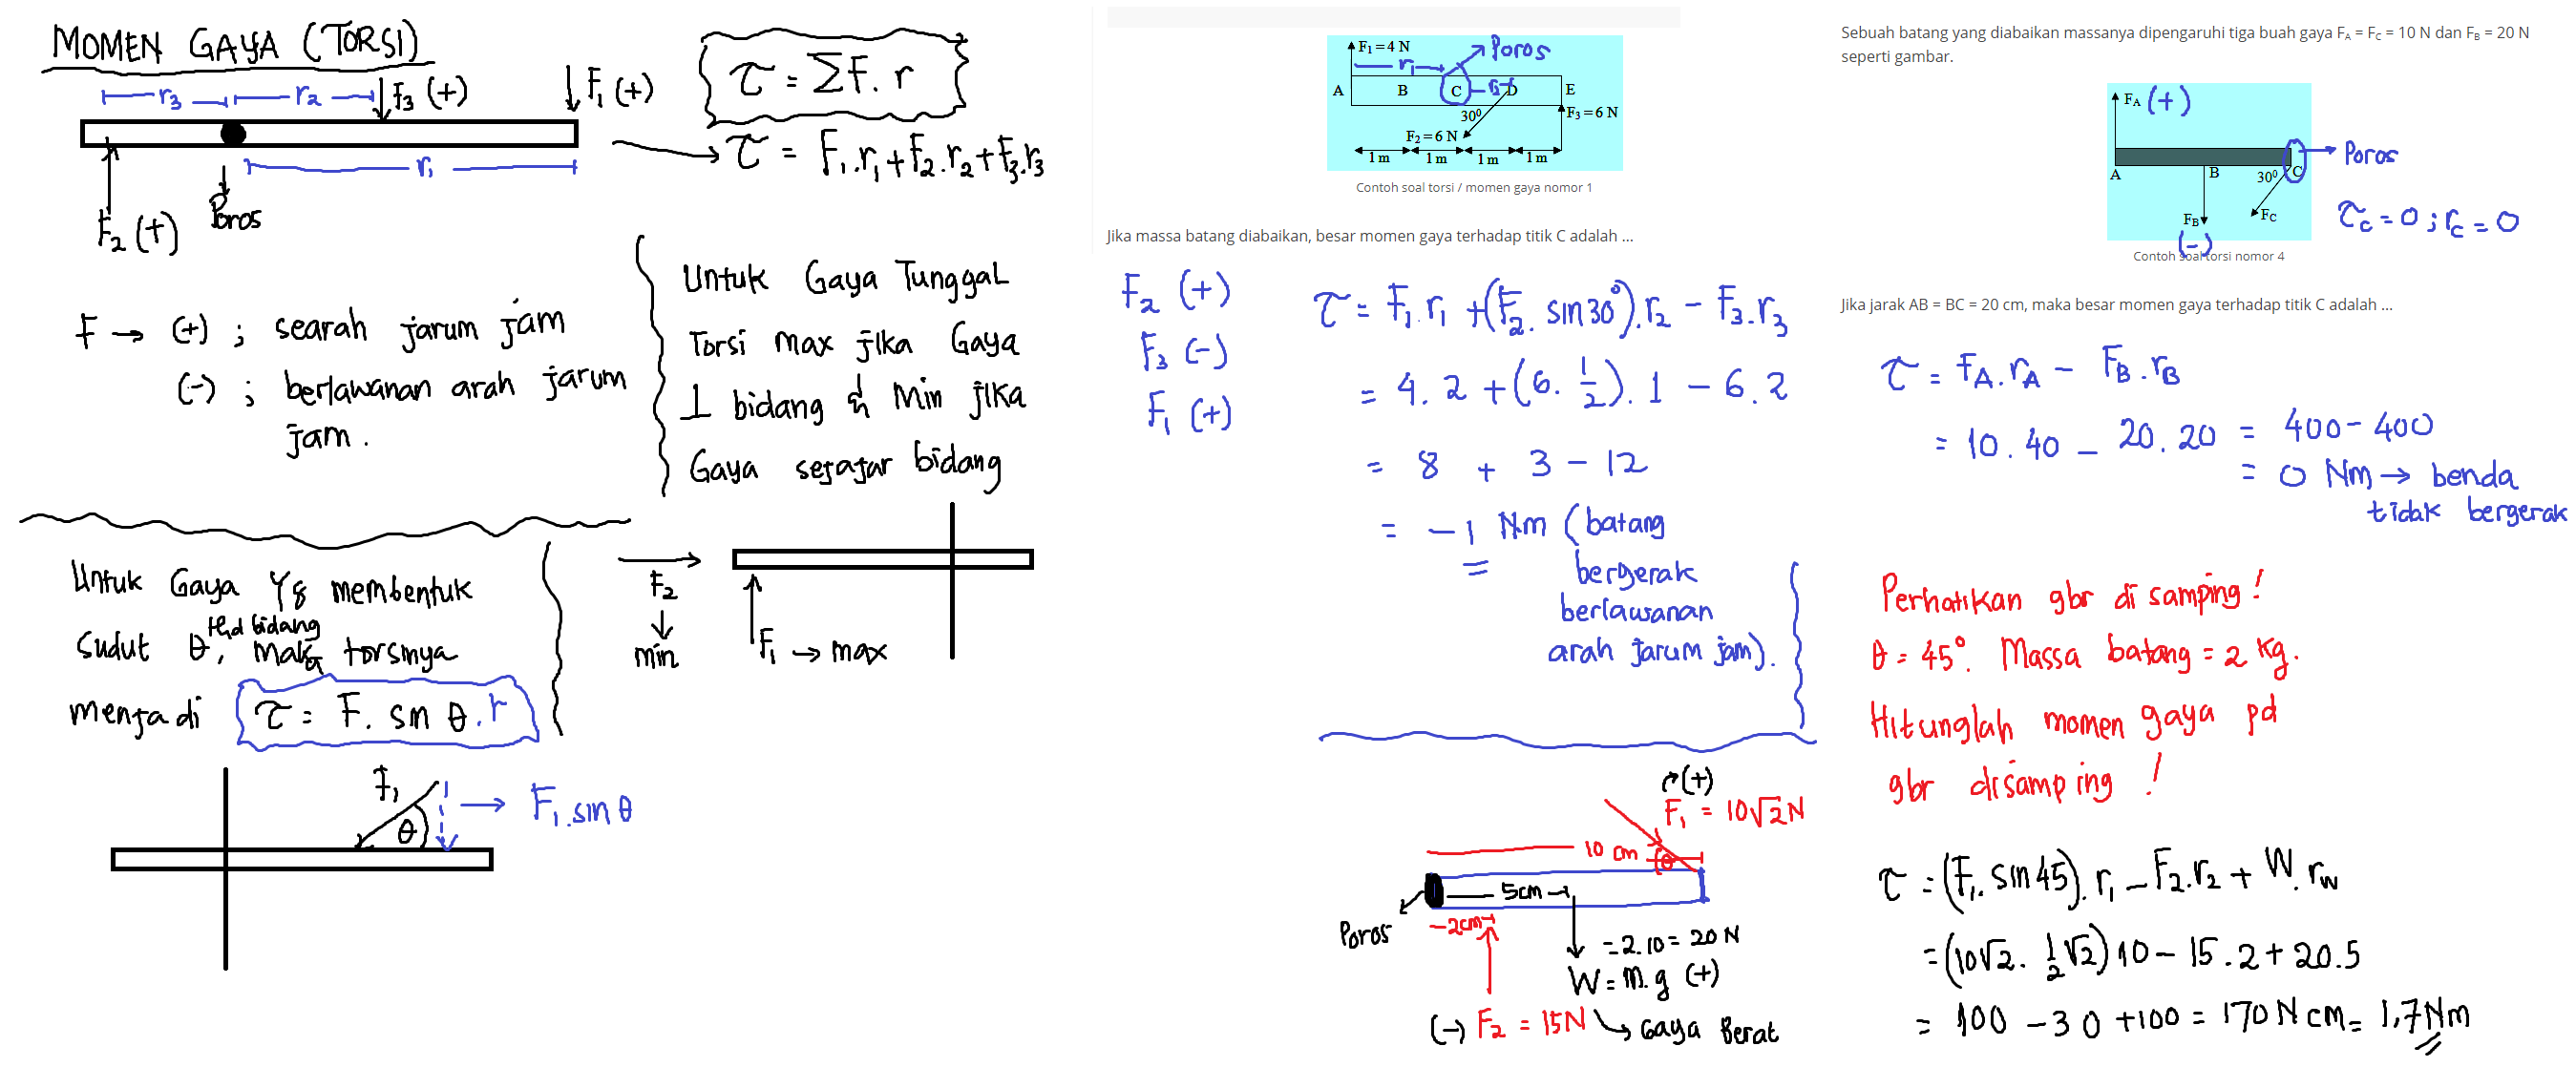 MOMEN GAYA (TORSI)
r3
r2
F3 (+)
F1 (+)
r1
F2 (+)
Poros
τ = ΣF. r
τ = F1.r1 + F2.r2 + F3.r3
F → (+) ; searah jarum jam
(-) ; berlawanan arah jarum
jam.
Untuk Gaya Tunggal
Torsi max jika Gaya
⊥ bidang & Min jika
Gaya sejajar bidang
Untuk Gaya Yg membentuk
Sudut θ, thd bidang maka torsinya
menjadi τ = F. sin θ. r
F2
↓
min
F1 → max
F1
θ
→ F1.sin θ
F1 = 4 N
r1
Poros
A
B
C
r2
D
E
30⁰
F3 = 6 N
F2 = 6 N
1 m 1 m 1 m 1 m
Contoh soal torsi / momen gaya nomor 1
Jika massa batang diabaikan, besar momen gaya terhadap titik C adalah ...
F2 (+)
F3 (-)
F1 (+)
τ = F1.r1 + (F2. sin 30°).r2 - F3.r3
= 4. 2 + (6. 1/2). 1 - 6.2
= 8 + 3 - 12
= -1 Nm (batang
bergerak
berlawanan
arah jarum jam).
(+)
F1 = 10√2 N
10 cm
θ
5cm
Poros
2cm
= 2.10 = 20 N
W = m.g (+)
(-) F2 = 15N
Gaya Berat
Sebuah batang yang diabaikan massanya dipengaruhi tiga buah gaya FA = FC = 10 N dan FB = 20 N
seperti gambar.
FA (+)
→ Poros
A
B
30⁰
C
FB
FC
(-)
τc = 0 ; rc = 0
Contoh soal torsi nomor 4
Jika jarak AB = BC = 20 cm, maka besar momen gaya terhadap titik C adalah ...
τ = FA.rA - FB.rB
= 10.40 - 20.20 = 400 - 400
= 0 Nm → benda
tidak bergerak
Perhatikan gbr di samping!
θ = 45°. Massa batang = 2 kg.
Hitunglah momen gaya pd
gbr disamping!
τ = (F1. sin 45). r1 - F2.r2 + W. rw
= (10√2. 1/2 √2) 10 - 15.2 + 20.5
= 100 - 30 + 100 = 170 N cm = 1,7 Nm